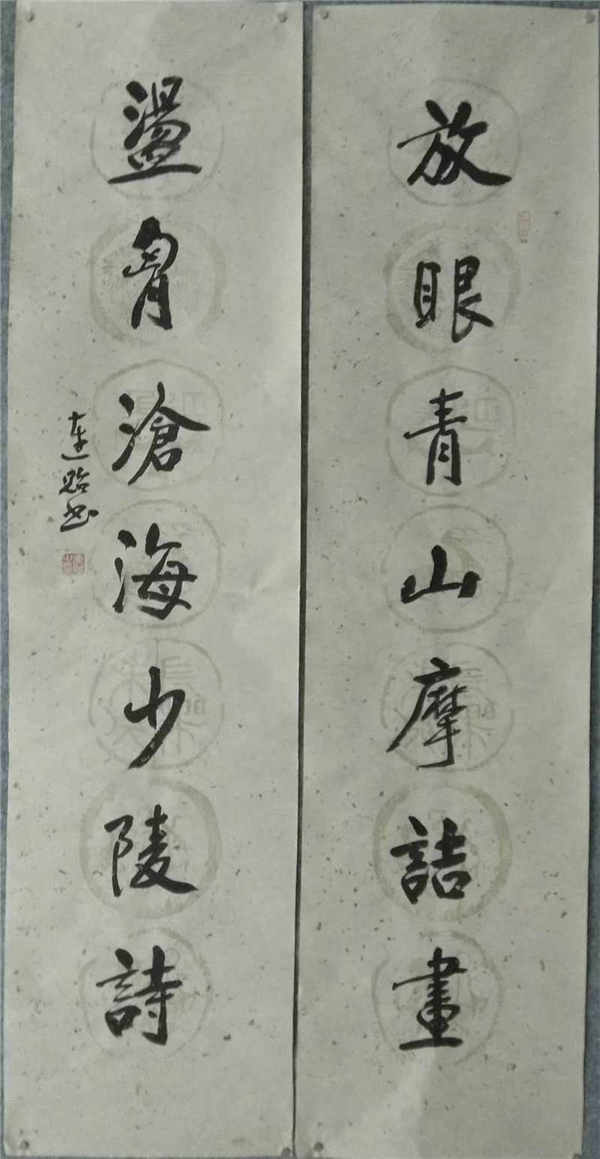 放眼青山摩詰畫
盪胷滄海少陵詩
連书